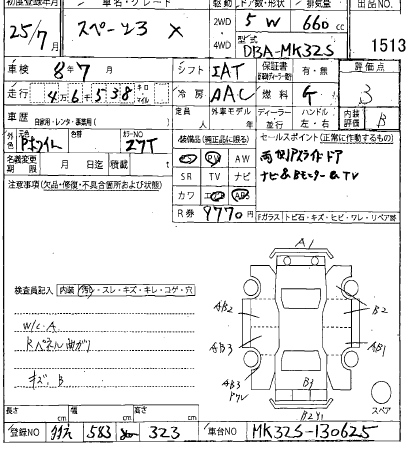 初度登録年月 車名・グレード 駆動 ドア数・形状 排気量 出品NO
25/7月 スペーシア X 2WD・4WD 5 W 660 cc
型式 DBA-MK32S 1513
車検 8年7月 シフト IAT 保証書 有・無 評価点
走行 4万6千538 キロ マイル 冷房 AAC 燃料 G 3
車歴 自家用・レンタ・事業用( ) 定員 人 外車モデル 年 ディーラー 並行 ハンドル 左・右 内装評価 B
外色 Pホワイト 色替 カラーNO Z7T 装備品(純正品に限る) セールスポイント(正常に作動するもの)
名義変更期限 月 日迄 積載 t PS PW AW
両側Pスライドドア
SR TV ナビ
ナビ&Bモニター&TV
注意事項(欠品・修復・不具合箇所および状態) カワ エアB ABS
R券 9770円 Fガラス トビ石・キズ・ヒビ・ワレ・リペア跡
A1
検査員記入 内装 汚・スレ・キズ・キレ・コゲ・穴
AB2 B2
W/C.A
Rパネル曲がり
AB3 AB1
キズ、B
AB3 B1
B2Y1 スペア
長さ cm 幅 cm 高さ cm
登録NO 583 323 車台NO MK32S-130625